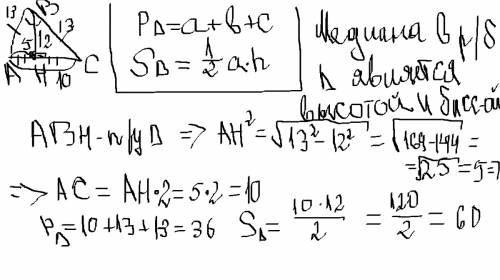 13 B 13
12
5
A H 10 C
P_Δ=a+b+c
S_Δ=1/2 a·h
Медиана в р/б
Δ является
высотой и бисс-ой
ABH-п/уΔ => AH²=√13²-12²=√169-144=
=√25=5=>
=> AC=AH·2=5·2=10
P_Δ=10+13+13=36 S_Δ=10·12/2=120/2=60